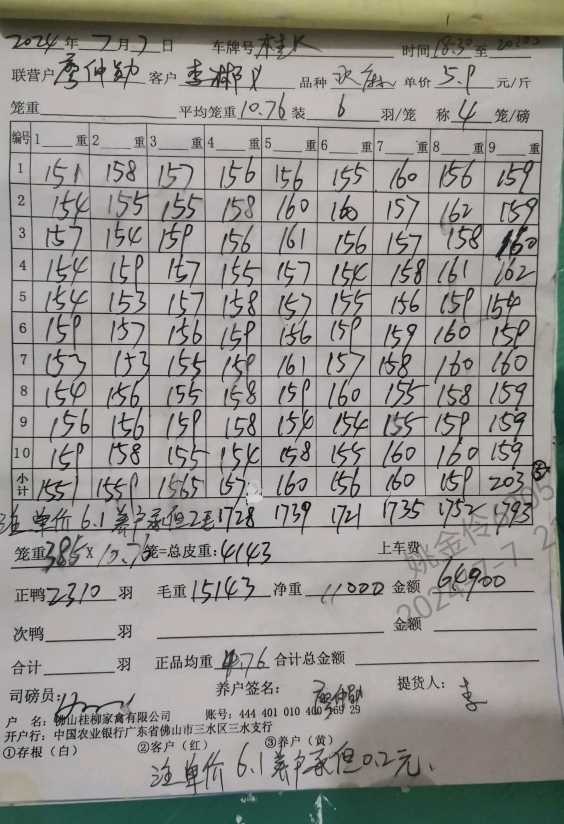 2024年7月7日 车牌号桂K 时间18:30至
联营户廖仲勋 客户李彬 品种 单价5.9元/斤
笼重 平均笼重10.76 装6羽/笼 称4笼/磅
编号 1重 2重 3重 4重 5重 6重 7重 8重 9重
1 151 158 157 156 156 155 160 156 159
2 154 155 155 158 160 160 157 162 159
3 157 154 159 156 161 156 157 158 160
4 154 159 157 155 157 154 158 161 162
5 154 153 157 158 157 155 156 159 154
6 159 157 156 159 156 159 159 160 159
7 153 153 155 159 161 157 158 160 160
8 154 156 155 158 159 160 155 158 159
9 156 156 159 158 154 154 155 159 159
10 159 158 155 154 158 155 160 160 159
小计 1551 1559 1565 157 160 156 160 159 203 ⑤
注单价6.1养户承但2毛 1728 1739 1721 1735 1752 1793
笼重385×10.76笼=总皮重:4143 上车费
正鸭2310羽 毛重15143 净重11000 金额64900
次鸭羽 金额
合计羽 正品均重4.76 合计总金额
司磅员: 养户签名:廖仲勋 提货人:李
户 名:佛山桂柳家禽有限公司 账号:444 401 010 400 269 29
开户行:中国农业银行广东省佛山市三水区三水支行
①存根(白) ②客户(红) ③养户(黄)
注单价6.1养户承但0.2元.
姚金伶